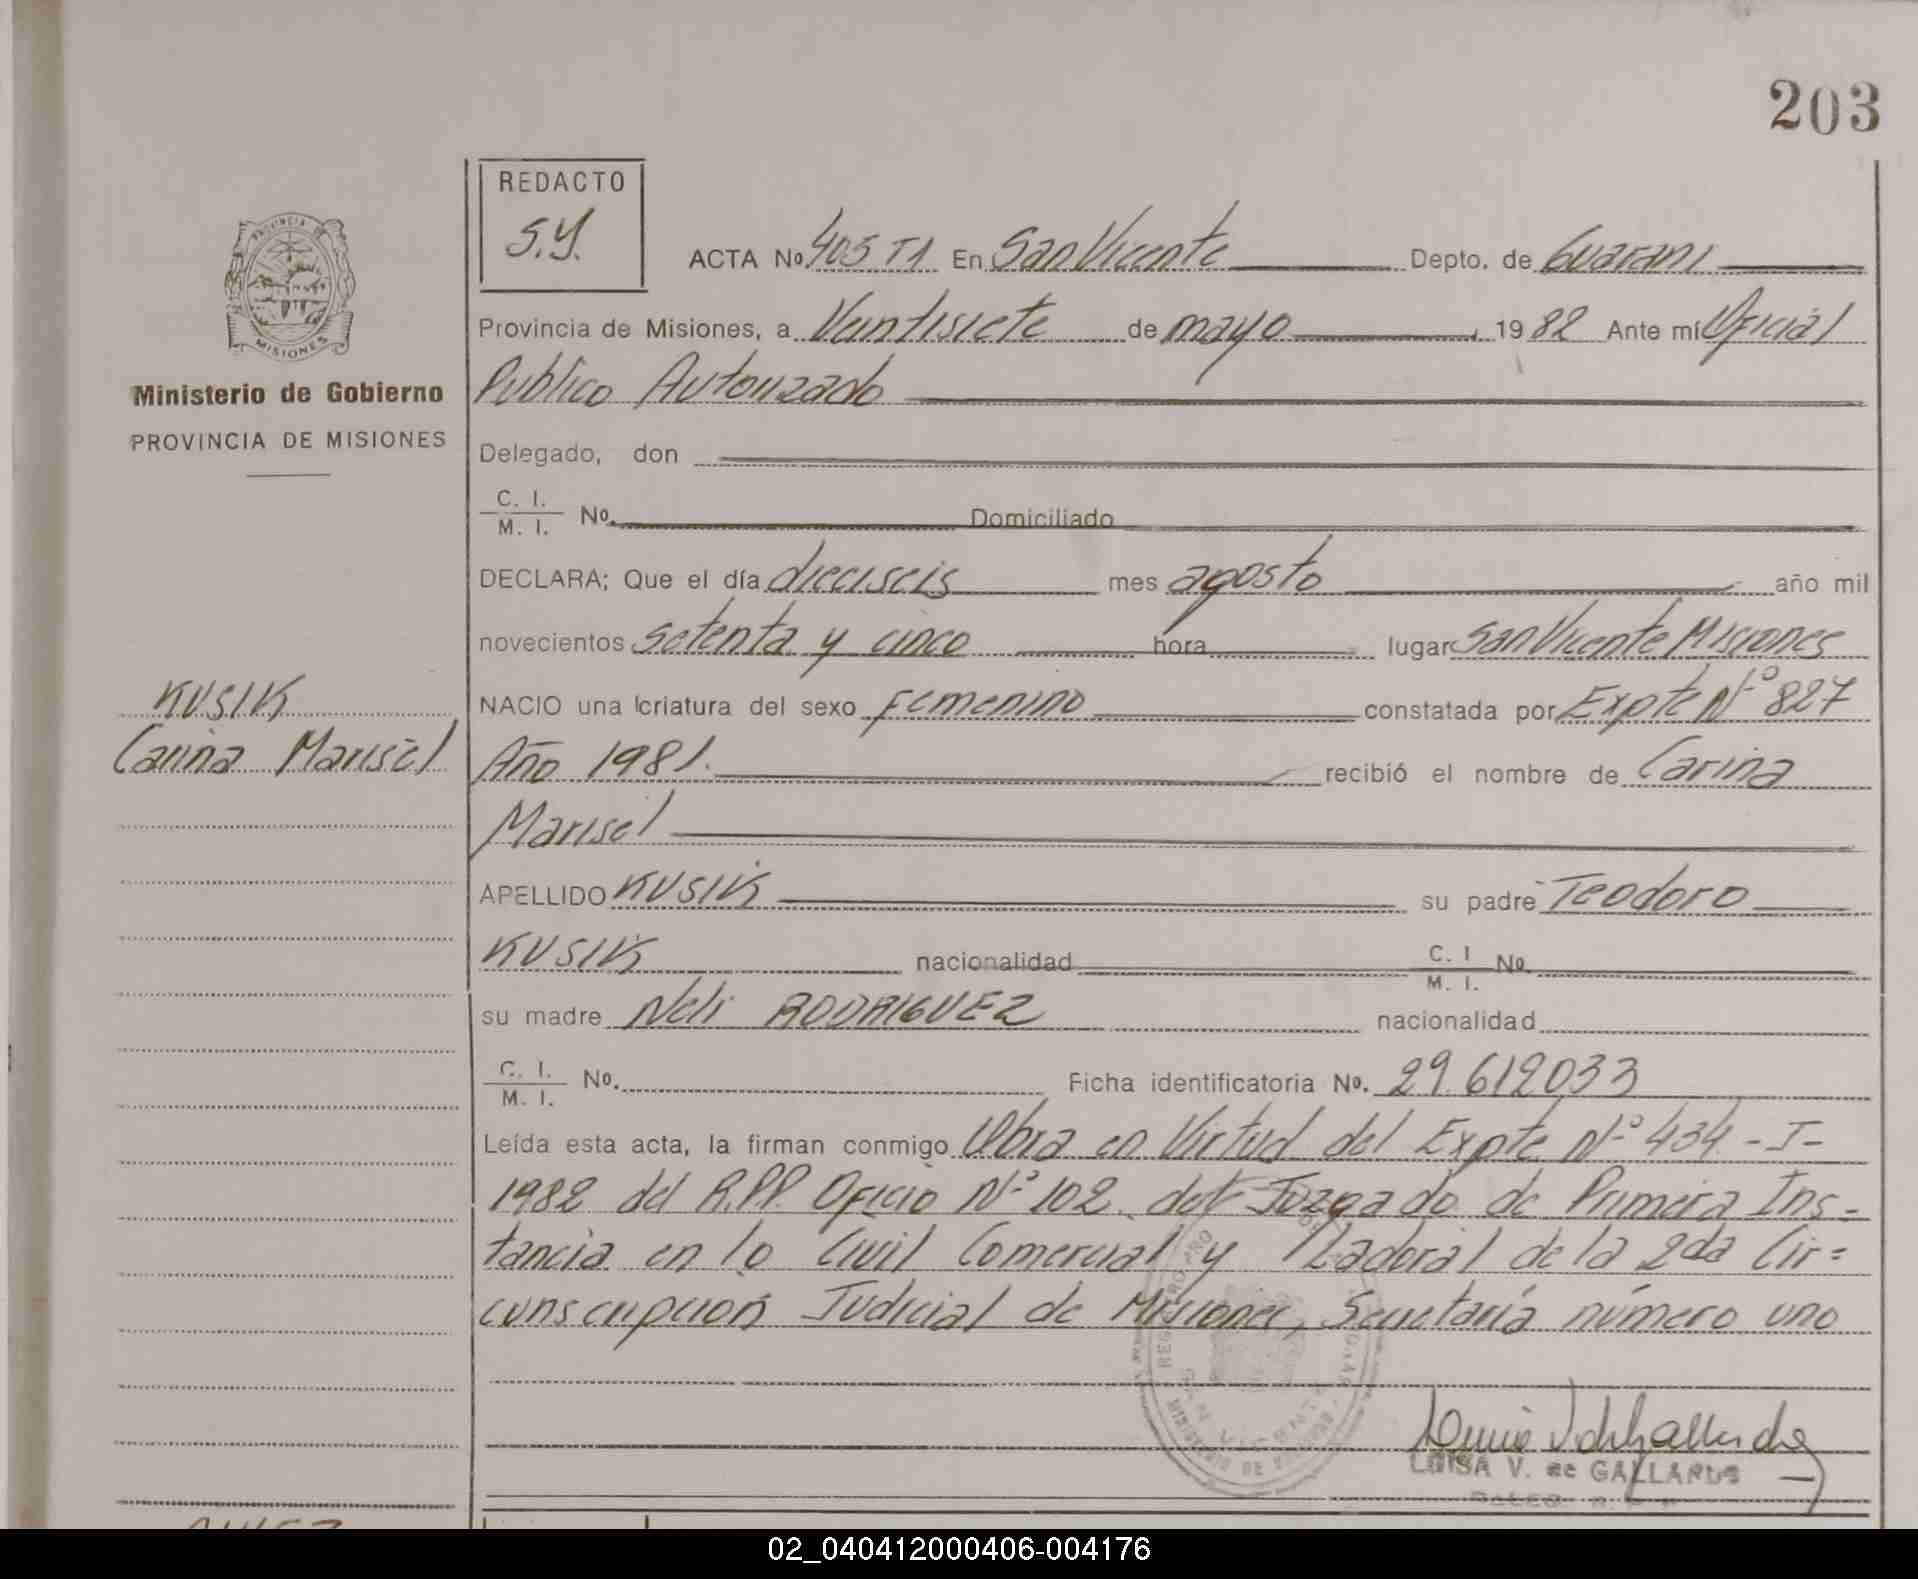 203
REDACTO
S.Y.
PROVINCIA DE
MISIONES
Ministerio de Gobierno
PROVINCIA DE MISIONES
ACTA No. 405 T1 En San Vicente Depto. de Guarani
Provincia de Misiones, a Veintisiete de mayo 1982 Ante mí Oficial
Publico Autorizado
Delegado, don
C. I.
M. I. No. Domiciliado
DECLARA; Que el día dieciseis mes agosto año mil
novecientos setenta y cinco hora lugar San Vicente Misiones
KUSIK
Carina Marisel
NACIO una criatura del sexo Femenino constatada por Expte Nº 827
Año 1981. recibió el nombre de Carina
Marisel
APELLIDO KUSIK su padre Teodoro
KUSIK nacionalidad C. I. M. I. No.
su madre Neli RODRIGUEZ nacionalidad
C. I.
M. I. No. Ficha identificatoria No. 29.612033
Leída esta acta, la firman conmigo Obra en Virtud del Expte Nº 434 - I-
1982 del R.P.P. Oficio Nº 102 del Juzgado de Primera Ins-
tancia en lo Civil Comercial y Laboral de la 2da Cir=
cunscripción Judicial de Misiones, Secretaría número uno
LUISA V. de GALLARDO
02_040412000406-004176